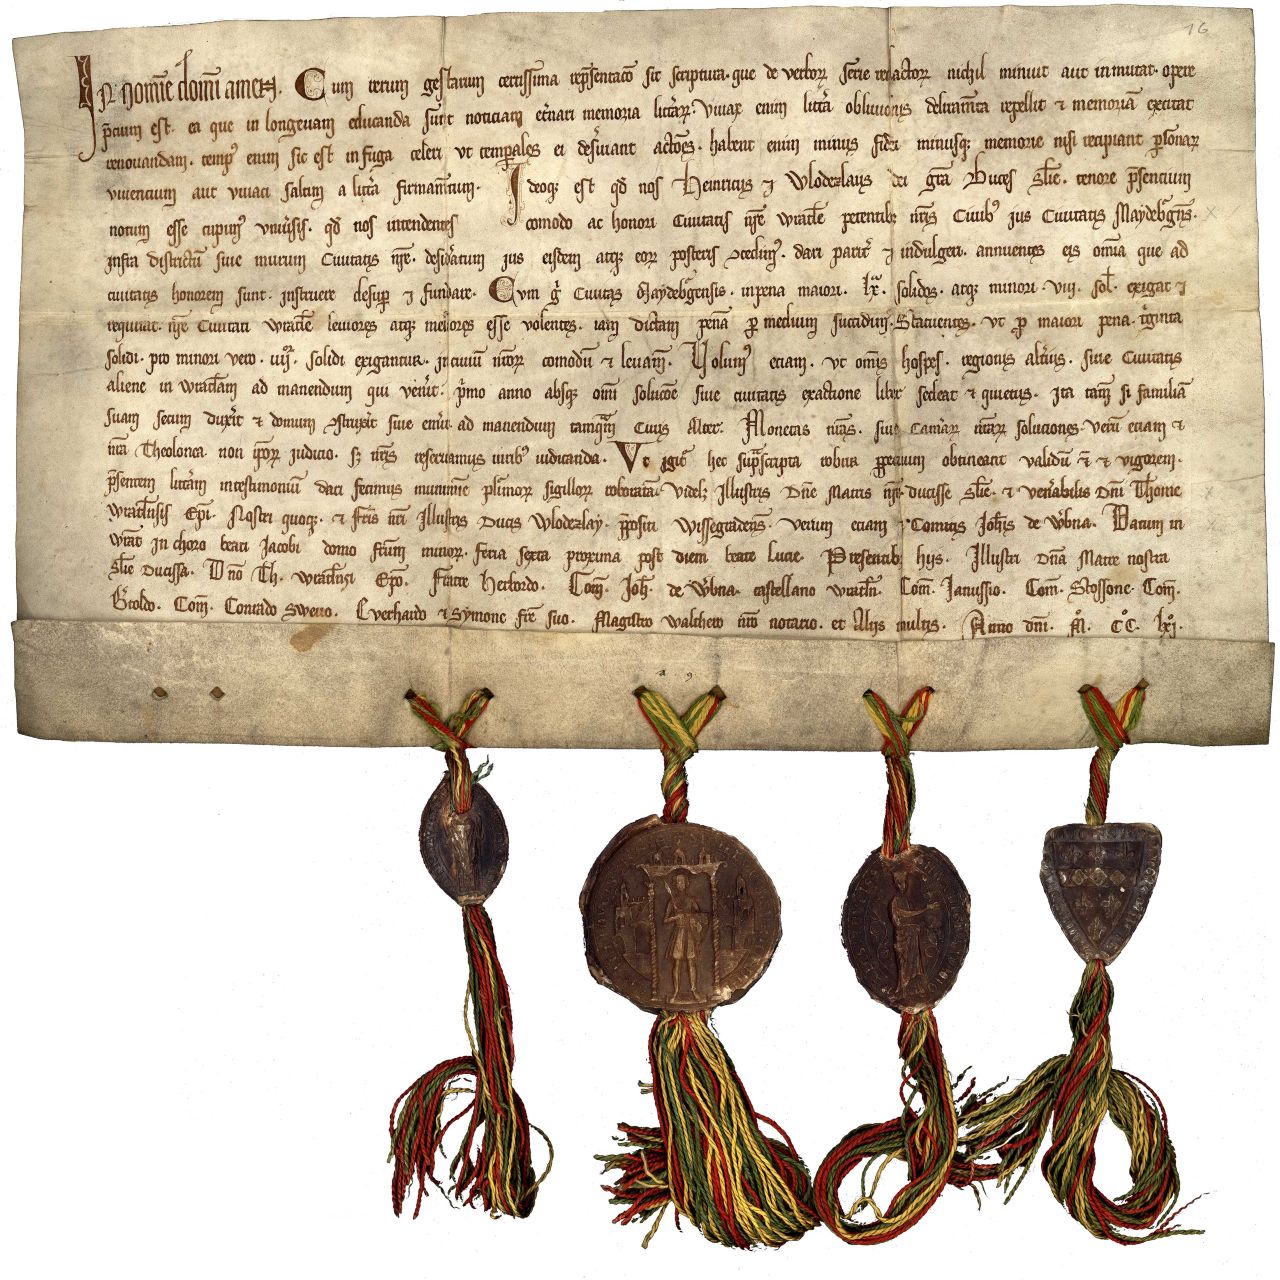 In Nomine domini amen. Cum rerum gestarum certissima rep͛sentaco sit scriptura. que de verbor͛ serie redactor͛ nichil minuit aut inmutat. opere
p̄cium est. ea que in longevam educanda sunt noticiam et͛nari memoria litt͛ar͛. Vivax enim litt͛a oblivionis deliram̄ta repellit ⁊ memoriā excitat
renovandam. temp⁹ enim sic est in fuga celeri ut temp̱ales ei des͛viant actōes. habent enim minus fidei minusq; memorie nisi recipiant p̱sonar͛
viventium aut vivaci saltim a litt͛a firmam̄tum. Ideoq; est qd̄ nos Heinricus ⁊ Wlodezlaus dei gr̄a Duces Slīe. tenore p̄sencium
notum esse cupim⁹ univ͛sis. qd̄ nos intendentes comodo ac honori Civitatis nr̄e Wratl͛e petentib; nr̄is Civib⁹ jus Civitatis Maydeb͛gn̄s.
infra districtū sive murum Civitatis nr̄e. desid͛atum jus eisdem atq; eor͛ posteris ꝯcedim⁹. dari parit͛ ⁊ indulgeri. annuentes eis omnia que ad
civitatis honorem sunt. instruere desup̱ ⁊ fundare. Cum g͛ Civitas Maydeb͛gensis. in pena maiori. lxͣ. solidos. atq; minori. viii. sol̄. exigat ⁊
requirat. nr̄e Civitati Wratl͛e leviores atq; meliores esse volentes. iam dictam penā p̱ medium succidim⁹. Statuentes. ut p̱ maiori pena. t͛ginta
solidi. pro minori vero. iiii͛. solidi exigantur. in civiū nr̄or͛ comodū ⁊ levam̄. Volum⁹ etiam. ut omīs hospes. regionis alt͛ius. sive Civitatis
aliene in Wratl͛am ad manendum qui ven͛it. p͛mo anno absq; omī solucōe sive civitatis exactione lib͛e sedeat ⁊ quietus. Ita tam̄ si familiā
suam secum dux͛it ⁊ domum ꝯstrux͛it sive em͛it. ad manendum tamq̄m Civis Alter. Monetas nr̄as. sive Cam͛ar͛ nr̄ar͛ soluciones. Verū etiam ⁊
nr̄a Theolonea non ip̄or͛ judicio. s; nr̄is reservamus viribus iudicanda. Ut igit͛ hec sup͛scripta robur p̱petuum obtineant validū ⁊ vigorem.
p̄sentem litt͛am in testimoniū dari fecimus munimine plurimor͛ sigillor͛ roboratā. Videl; Illustris Dn̄e Matris nr̄e. ducisse Slīe. ⁊ ven͛abilis Dn̄i Thome
Wratl͛nsis Ep̄i. Nostri quoq; ⁊ fr̄is nr̄i Illustris Ducis Wlodezlay. p̄positi Wissegradens̄. Verum etiam ⁊ Comitis Joh̄is de W͛bna. Datum in
Wrat̄ in choro beati Jacobi domo fr̄m minor͛. feria sexta proxima post diem beate Lucie. Presentib; hiis. Illustri Dn̄a Matre nostra
Slīe Ducissa. Dn̄o Th̄. Wratl͛nsi Ep̄o. Fratre Herbordo. Com̄. Joh̄. de W͛bna. castellano Wratl͛n. Com̄. Janussio. Com̄. Stossone. Com̄.
B͛toldo. Com̄. Conrado Swevo. Everhardo ⁊ Symone fr̄e suo. Magistro Walthero nr̄o notario. et Aliis multis. Anno dn̄i. M̊. CC̊. lx̊i.
16